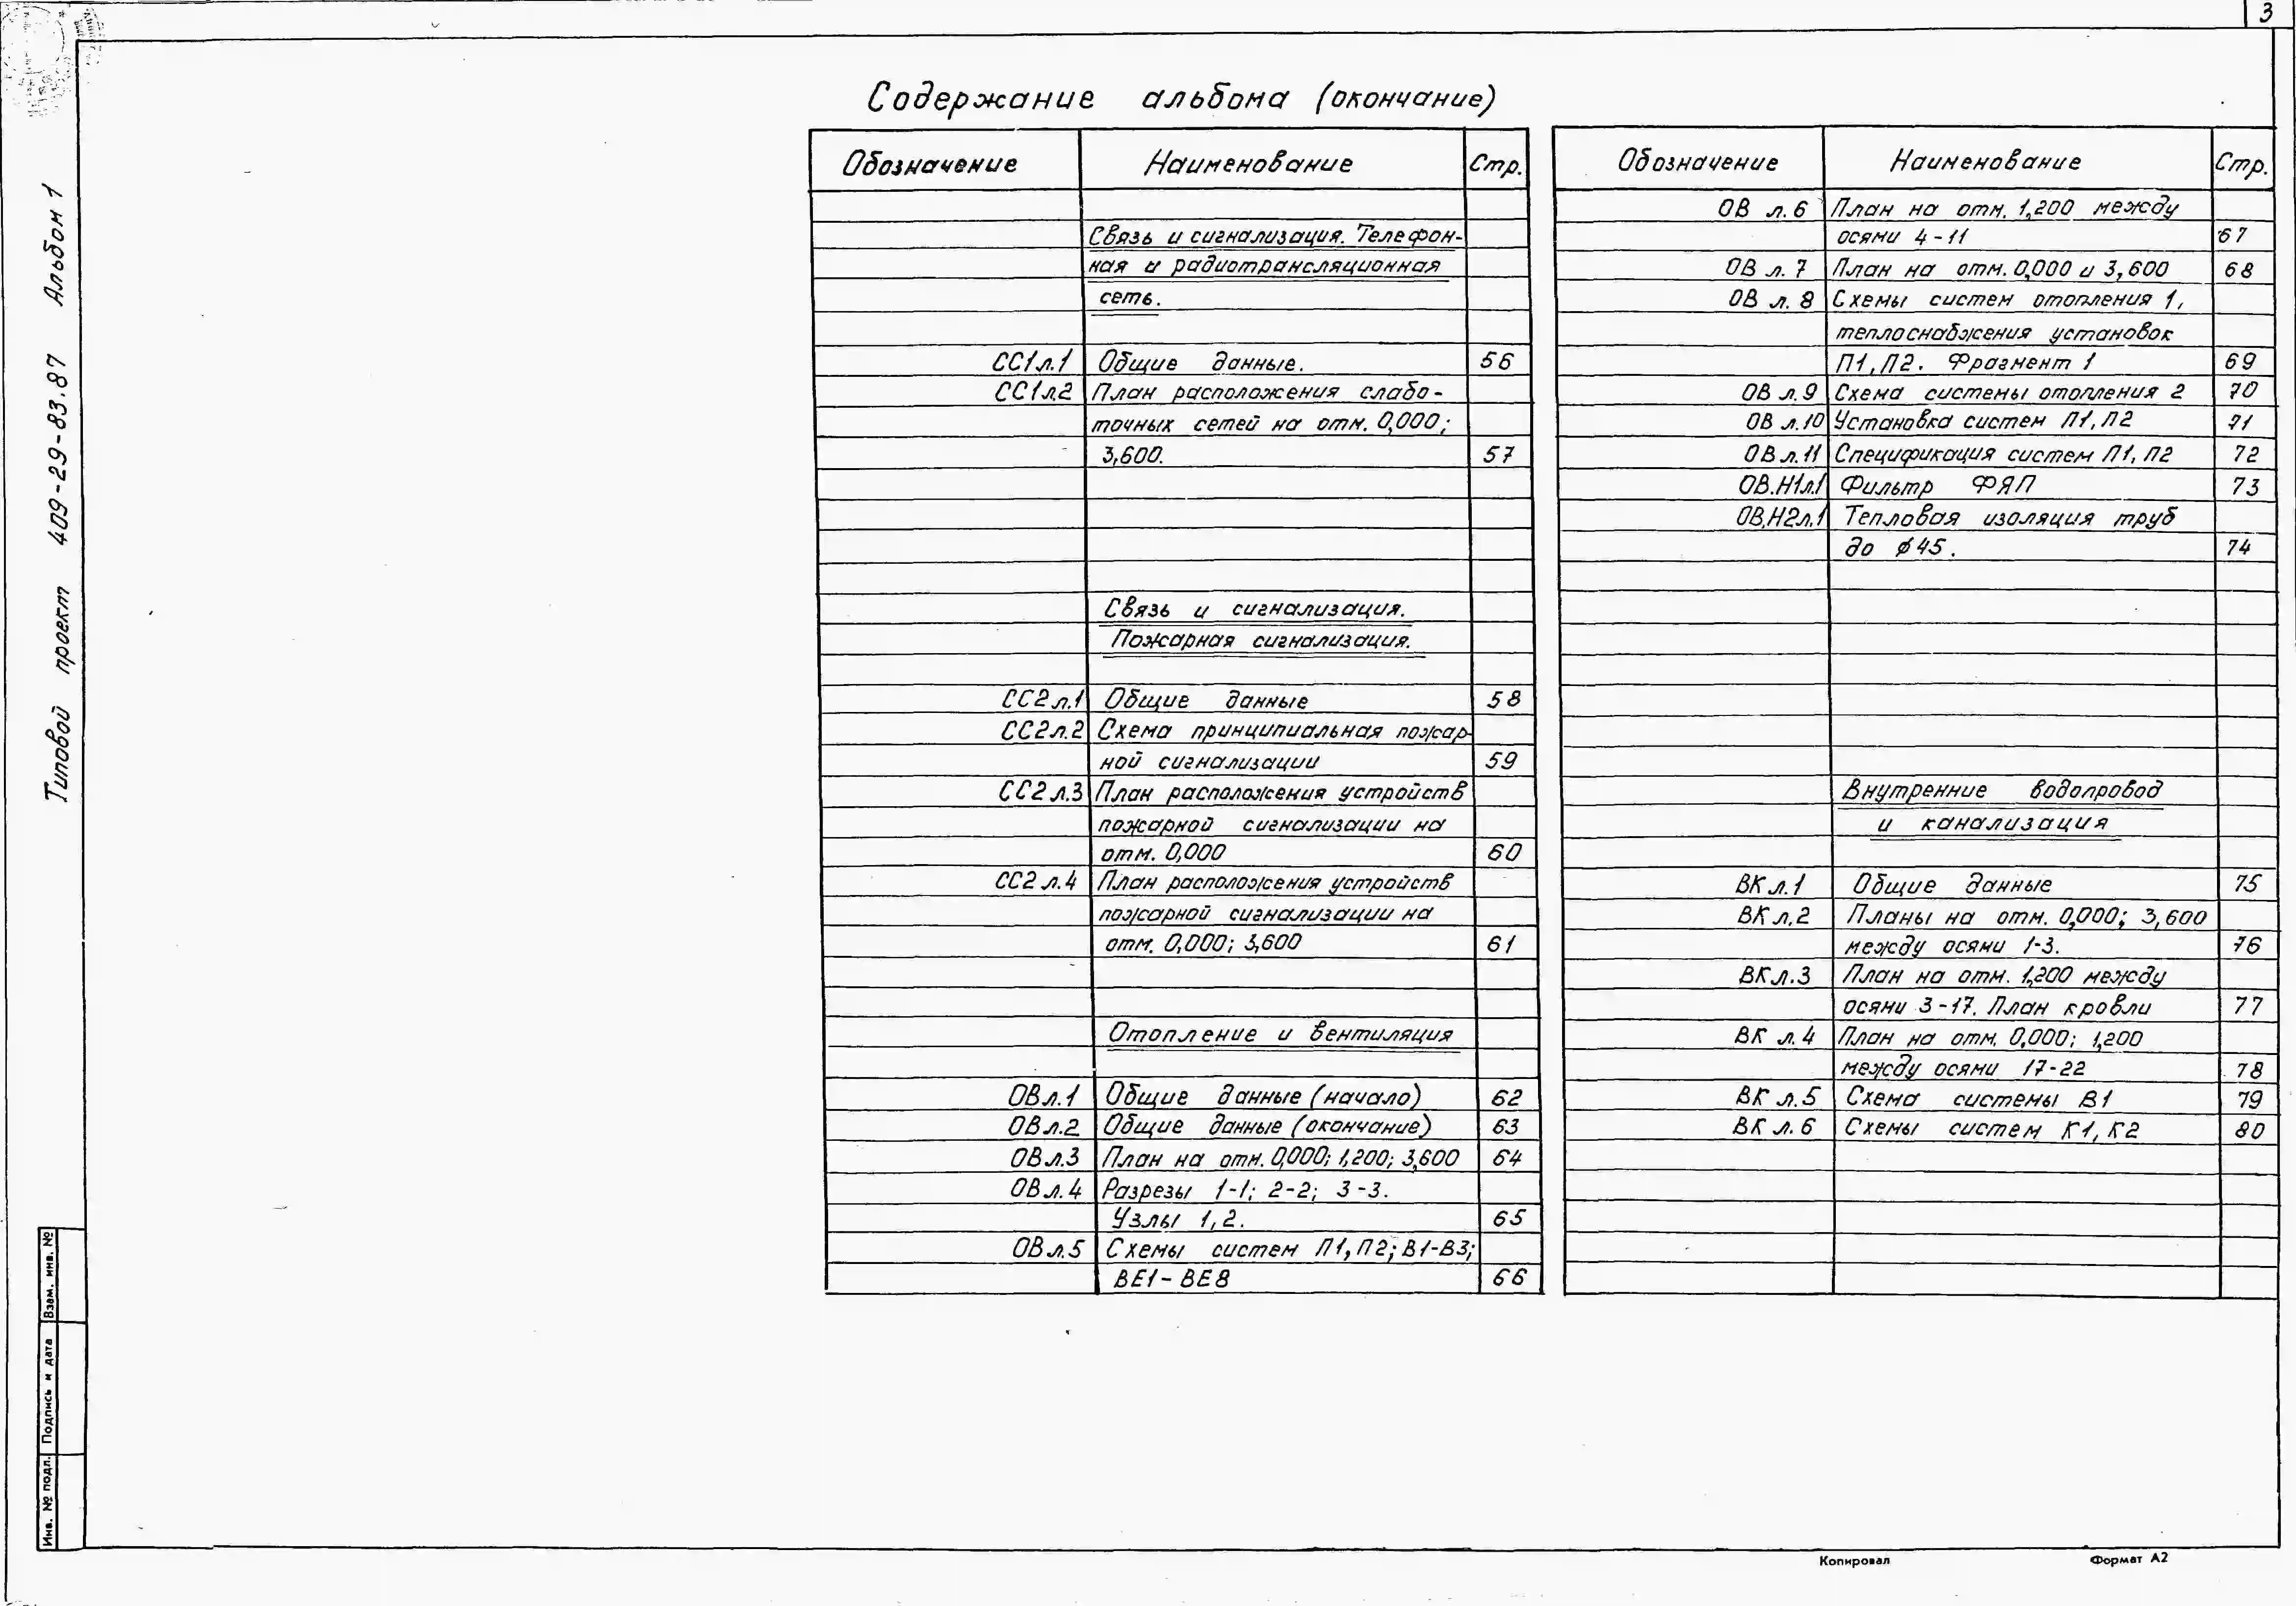 3
Содержание альбома (окончание)
Обозначение Наименование Стр.
Связь и сигнализация. Телефон-
ная и радиотрансляционная
сеть.
СС1л.1 Общие данные. 56
СС1л.2 План расположения слабо-
точных сетей на отм. 0,000;
3,600. 57
Связь и сигнализация.
Пожарная сигнализация.
СС2л.1 Общие данные 58
СС2л.2 Схема принципиальная пожар-
ной сигнализации 59
СС2л.3 План расположения устройств
пожарной сигнализации на
отм. 0,000 60
СС2л.4 План расположения устройств
пожарной сигнализации на
отм. 0,000; 3,600 61
Отопление и вентиляция
ОВл.1 Общие данные (начало) 62
ОВл.2 Общие данные (окончание) 63
ОВл.3 План на отм. 0,000; 1,200; 3,600 64
ОВл.4 Разрезы 1-1; 2-2; 3-3.
Узлы 1,2. 65
ОВл.5 Схемы систем П1, П2; В1-В3;
ВЕ1-ВЕ8 66
Обозначение Наименование Стр.
ОВ л.6 План на отм. 1,200 между
осями 4-11 67
ОВ л.7 План на отм. 0,000 и 3,600 68
ОВ л.8 Схемы систем отопления 1,
теплоснабжения установок
П1, П2. Фрагмент 1 69
ОВ л.9 Схема системы отопления 2 70
ОВ л.10 Установка систем П1, П2 71
ОВ л.11 Спецификация систем П1, П2 72
ОВ.Н1л.1 Фильтр ФЯП 73
ОВ.Н2л.1 Тепловая изоляция труб
до ϕ45. 74
Внутренние водопровод
и канализация
ВК л.1 Общие данные 75
ВК л.2 Планы на отм. 0,000; 3,600
между осями 1-3. 76
ВК л.3 План на отм. 1,200 между
осями 3-17. План кровли 77
ВК л.4 План на отм. 0,000; 1,200
между осями 17-22 78
ВК л.5 Схема системы В1 79
ВК л.6 Схемы систем К1, К2 80
Типовой проект 409-29-83.87 Альбом 1
Инв. № подл. Подпись и дата Взам. инв. №
Копировал Формат А2